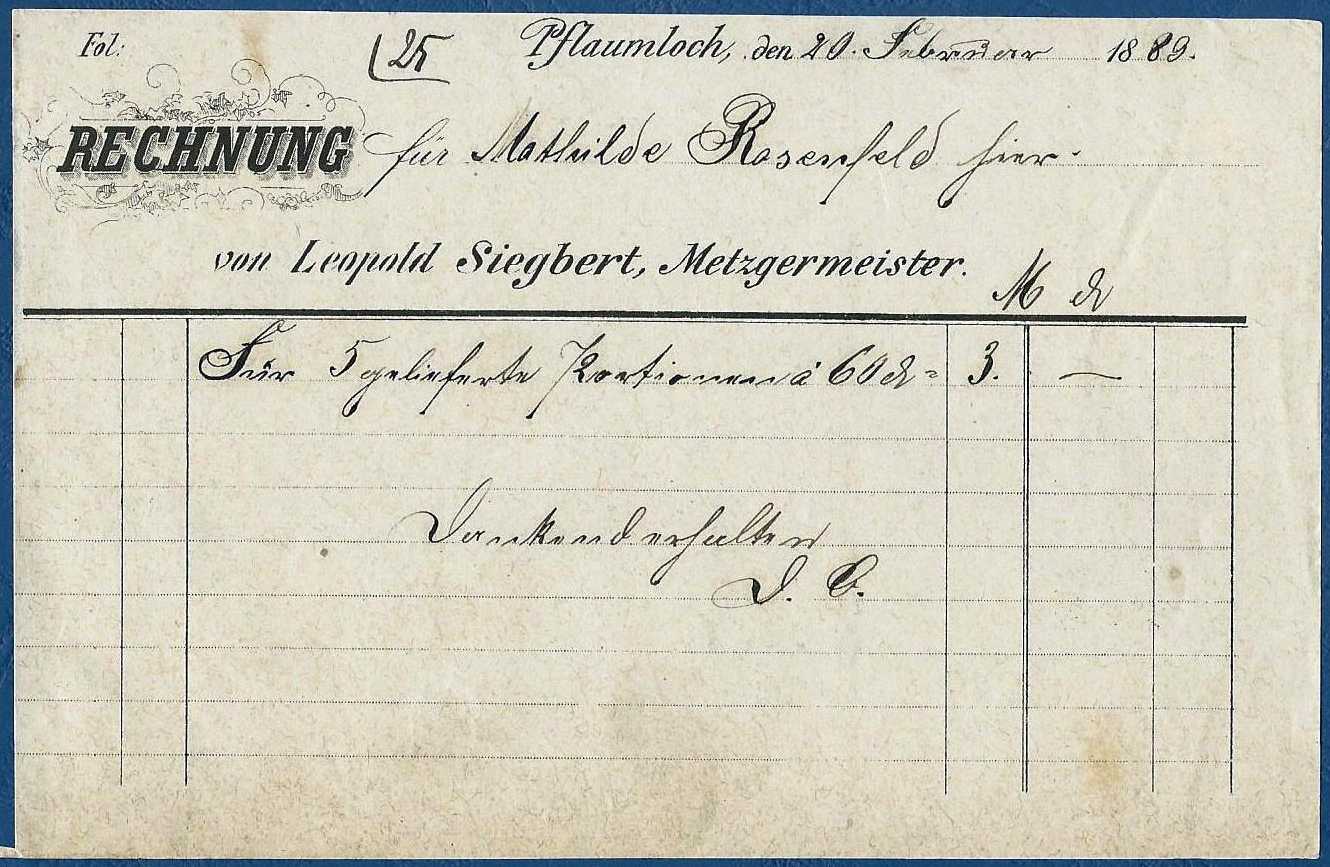 Fol: 25 Pflaumloch, den 20. Februar 1889.
RECHNUNG für Mathilde Rosenfeld hier.
von Leopold Siegbert, Metzgermeister.
M ₰
Für 5 gelieferte Portionen á 60 ₰ = 3. —
Dankend erhalten